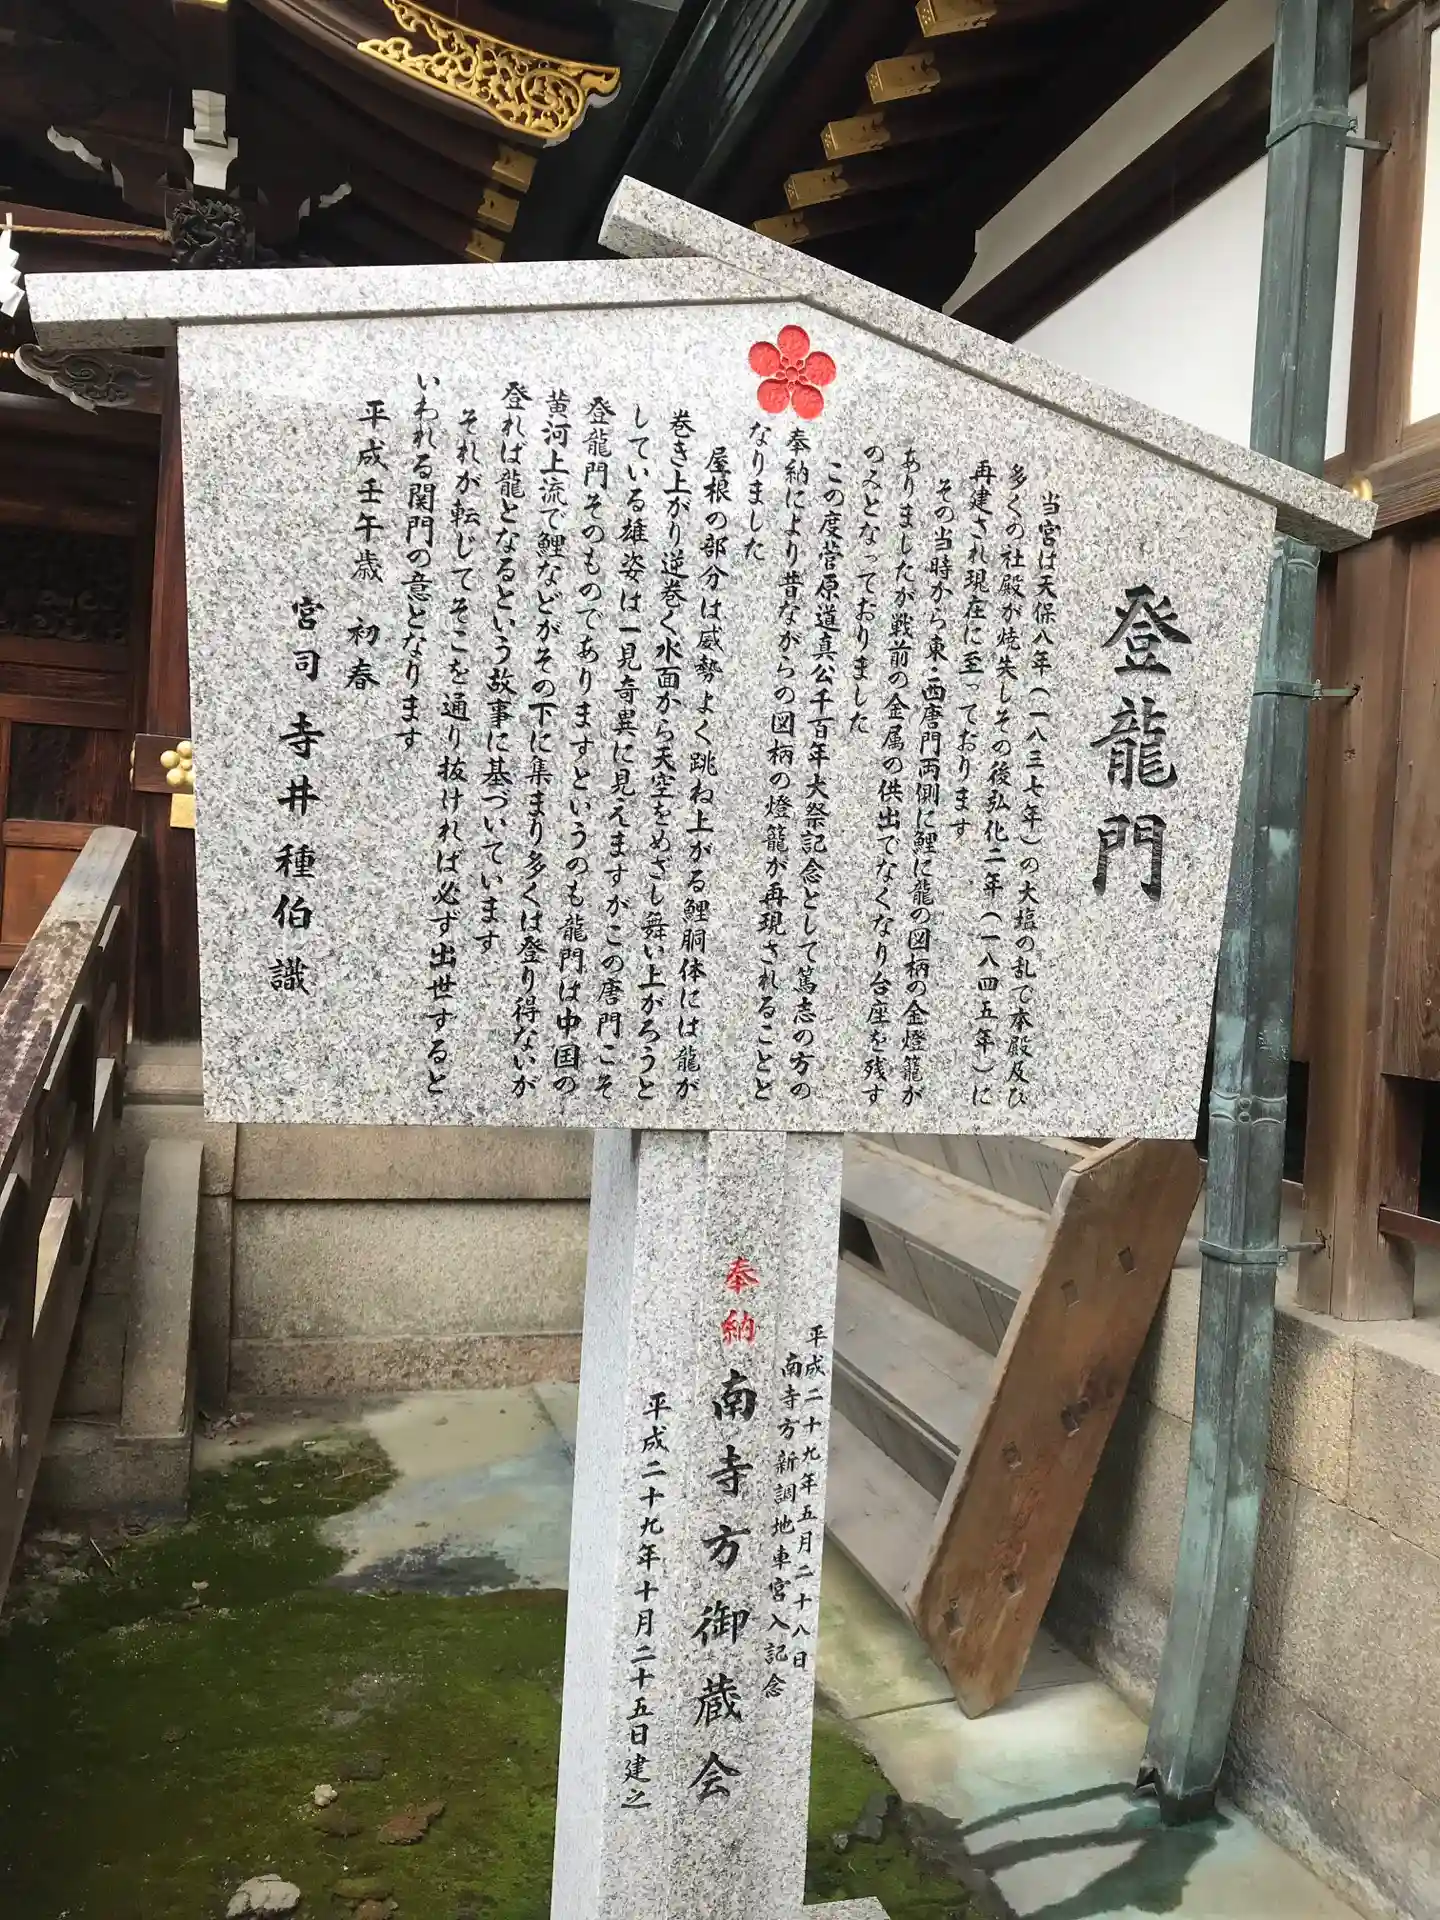 登龍門
当宮は天保八年(一八三七年)の大塩の乱で本殿及び
多くの社殿が焼失しその後弘化二年(一八四五年)に
再建され現在に至っております
その当時から東・西唐門両側に鯉に龍の図柄の金燈籠が
ありましたが戦前の金属の供出でなくなり台座を残す
のみとなっておりました
この度菅原道真公千百年大祭記念として篤志の方の
奉納により昔ながらの図柄の燈籠が再現されることと
なりました
屋根の部分は威勢よく跳ね上がる鯉胴体には龍が
巻き上がり逆巻く水面から天空をめざし舞い上がろうと
している雄姿は一見奇異に見えますがこの唐門こそ
登龍門そのものでありますというのも龍門は中国の
黄河上流で鯉などがその下に集まり多くは登り得ないが
登れば龍となるという故事に基づいています
それが転じてそこを通り抜ければ必ず出世すると
いわれる関門の意となります
平成壬午歳 初春
宮司 寺井種伯 識
平成二十九年五月二十八日
南寺方新調地車宮入記念
奉納 南寺方御蔵会
平成二十九年十月二十五日建之